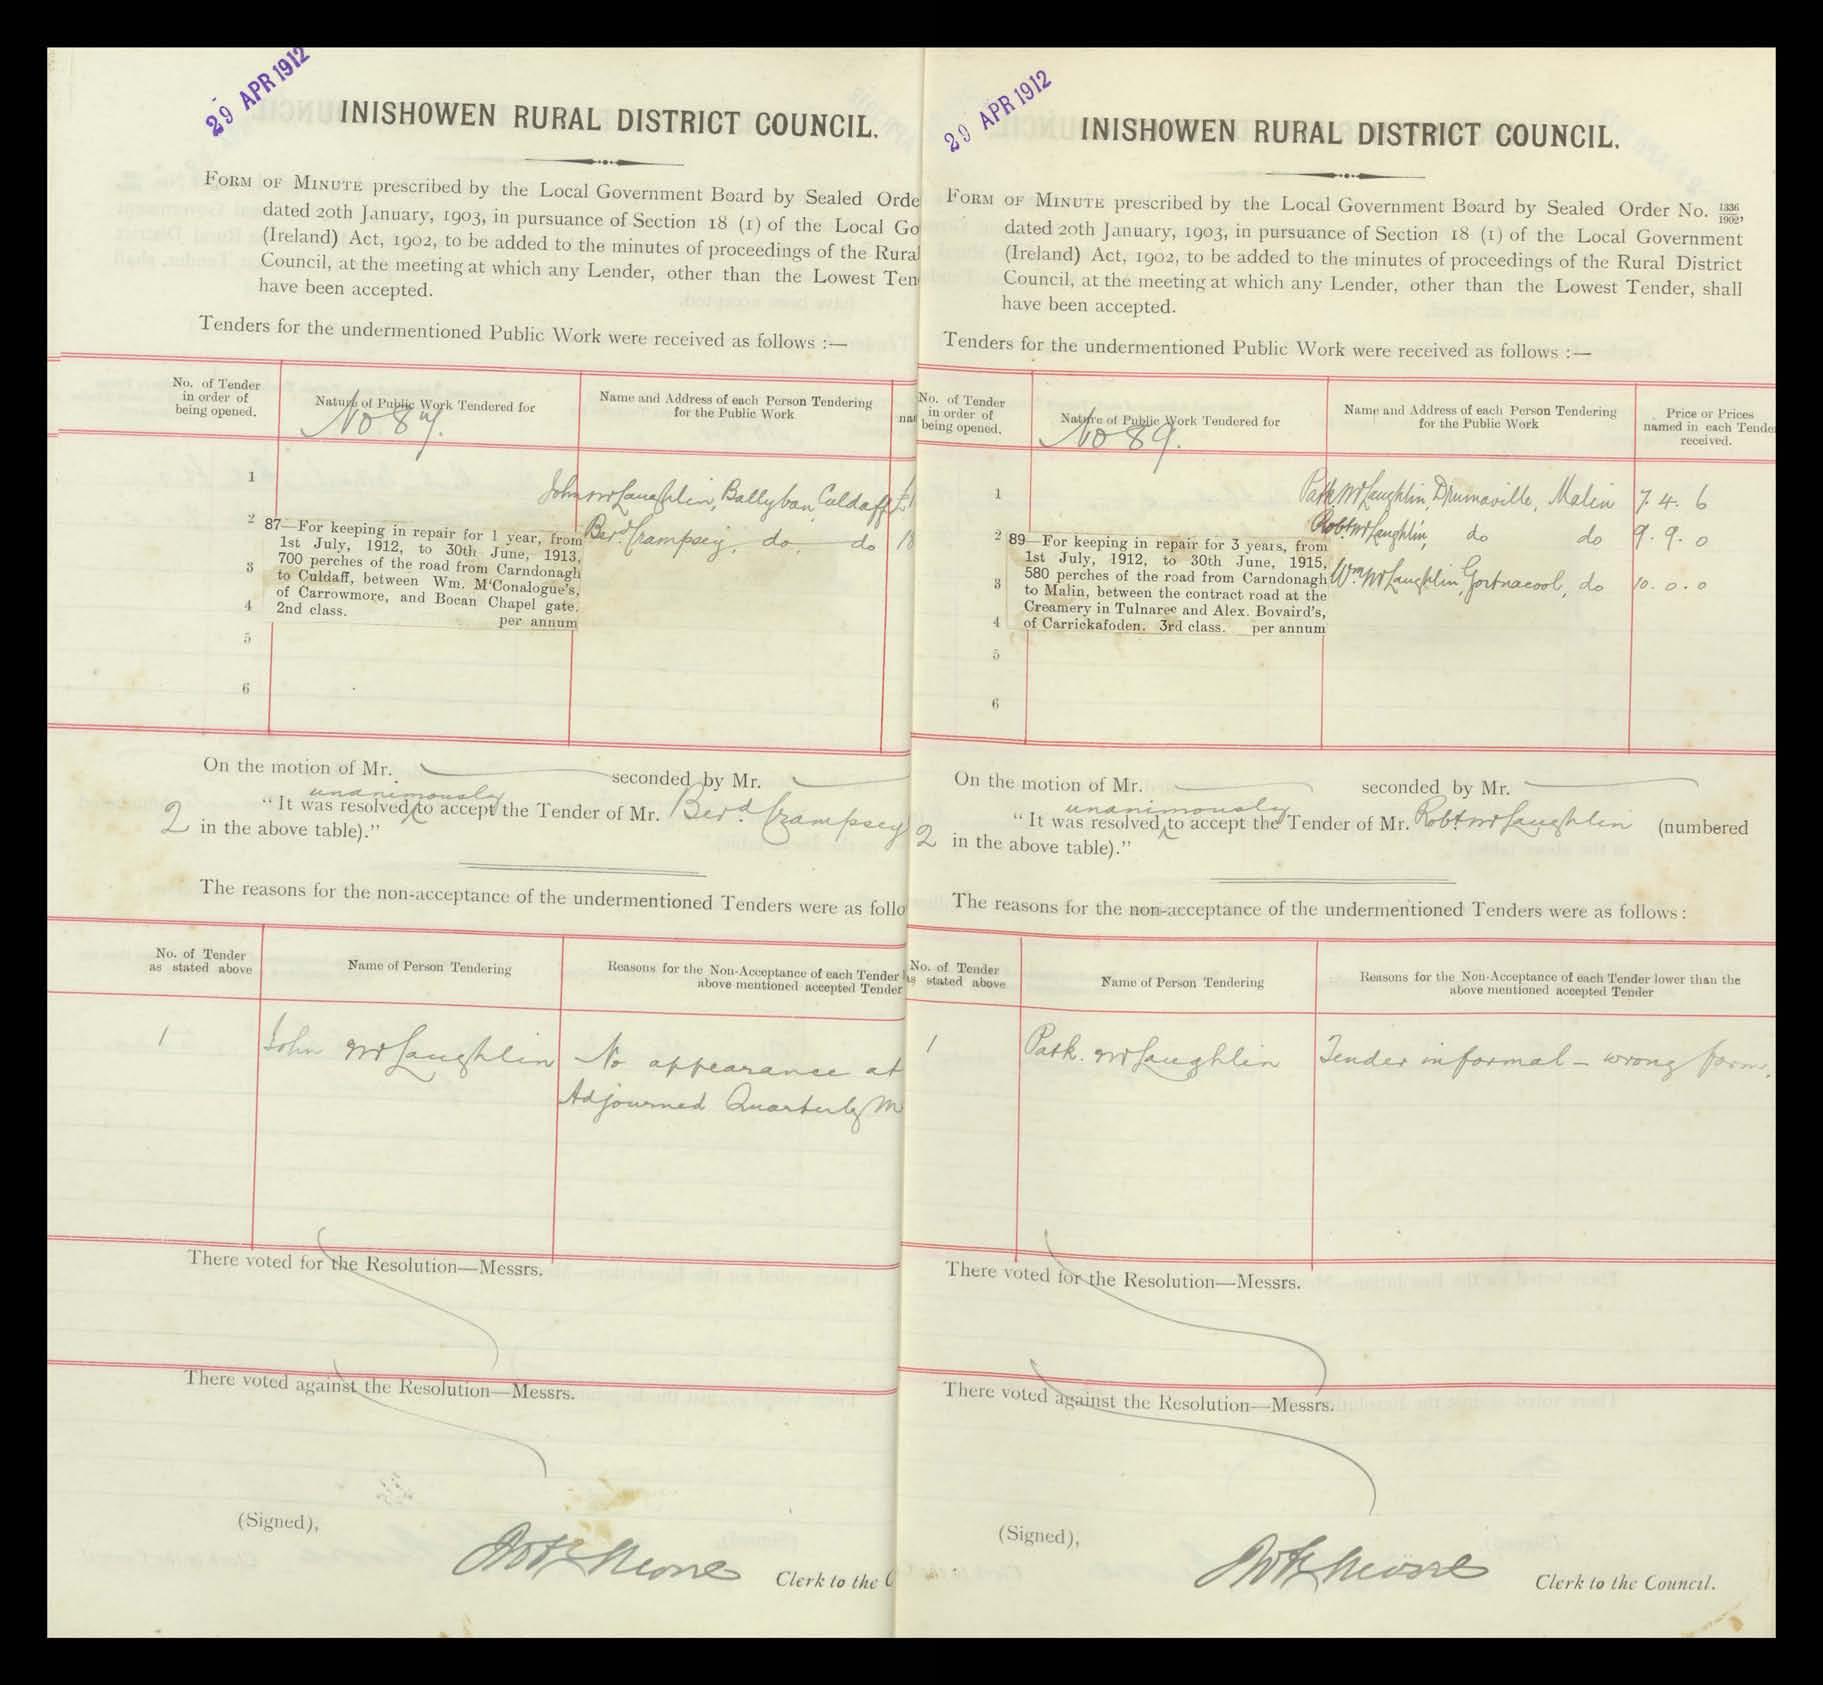 29 APR 1912
INISHOWEN RURAL DISTRICT COUNCIL.
FORM OF MINUTE prescribed by the Local Government Board by Sealed Orde
dated 20th January, 1903, in pursuance of Section 18 (1) of the Local Go
(Ireland) Act, 1902, to be added to the minutes of proceedings of the Rural
Council, at the meeting at which any Lender, other than the Lowest Ten
have been accepted.
Tenders for the undermentioned Public Work were received as follows :—
No. of Tender
in order of
being opened.
Nature of Public Work Tendered for
No 87.
Name and Address of each Person Tendering
for the Public Work
nam
1
John McLaughlin, Ballyban, Culdaff £1
2
Berd. Crampsey, do. do 18
87—For keeping in repair for 1 year, from
1st July, 1912, to 30th June, 1913,
700 perches of the road from Carndonagh
to Culdaff, between Wm. M'Conalogue's,
of Carrowmore, and Bocan Chapel gate.
2nd class. per annum
3
4
5
6
On the motion of Mr. seconded by Mr.
unanimously
"It was resolved to accept the Tender of Mr. Berd. Crampsey
2 in the above table)."
The reasons for the non-acceptance of the undermentioned Tenders were as follo
No. of Tender
as stated above
Name of Person Tendering
Reasons for the Non-Acceptance of each Tender
above mentioned accepted Tender
1 John McLaughlin No appearance at
Adjourned Quarterly M
There voted for the Resolution—Messrs.
There voted against the Resolution—Messrs.
(Signed),
Clerk to the C
29 APR 1912
INISHOWEN RURAL DISTRICT COUNCIL.
FORM OF MINUTE prescribed by the Local Government Board by Sealed Order No. 1336/1902,
dated 20th January, 1903, in pursuance of Section 18 (1) of the Local Government
(Ireland) Act, 1902, to be added to the minutes of proceedings of the Rural District
Council, at the meeting at which any Lender, other than the Lowest Tender, shall
have been accepted.
Tenders for the undermentioned Public Work were received as follows :—
No. of Tender
in order of
being opened.
Nature of Public Work Tendered for
No 89.
Name and Address of each Person Tendering
for the Public Work
Price or Prices
named in each Tende
received.
1
Patk. McLaughlin, Drumaville, Malin 7. 4. 6
2
Robt McLaughlin, do do 9. 9. 0
3
Wm. McLaughlin, Gortnacool, do 10. 0. 0
89—For keeping in repair for 3 years, from
1st July, 1912, to 30th June, 1915,
580 perches of the road from Carndonagh
to Malin, between the contract road at the
Creamery in Tulnaree and Alex. Bovaird's,
of Carrickafoden. 3rd class. per annum
4
5
6
On the motion of Mr. seconded by Mr.
unanimously
"It was resolved to accept the Tender of Mr. Robt McLaughlin (numbered
2 in the above table)."
The reasons for the non-acceptance of the undermentioned Tenders were as follows :
No. of Tender
as stated above
Name of Person Tendering
Reasons for the Non-Acceptance of each Tender lower than the
above mentioned accepted Tender
1 Patk. McLaughlin Tender informal – wrong form.
There voted for the Resolution—Messrs.
There voted against the Resolution—Messrs.
(Signed),
Clerk to the Council.